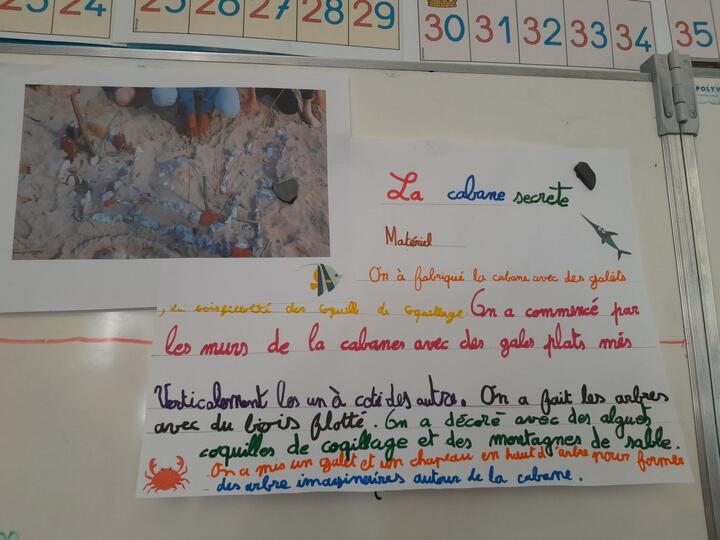 23 24 25 26 27 28 29 30 31 32 33 34 35
POLYV
La cabane secrete
Matériel
On à fabriqué la cabane avec des galets
, du boisfillotté des coquille de coquillage On a commencé par
les murs de la cabanes avec des gales plats més
Verticalement les un à coté des autre. On a fait les arbres
avec du bois flotté. On a décoré avec des algues
coquilles de cogillage et des montagnes de sable.
On a mis un galet et un chapeau en haut d'arbre pour former
des arbre imaginaires autour de la cabane.